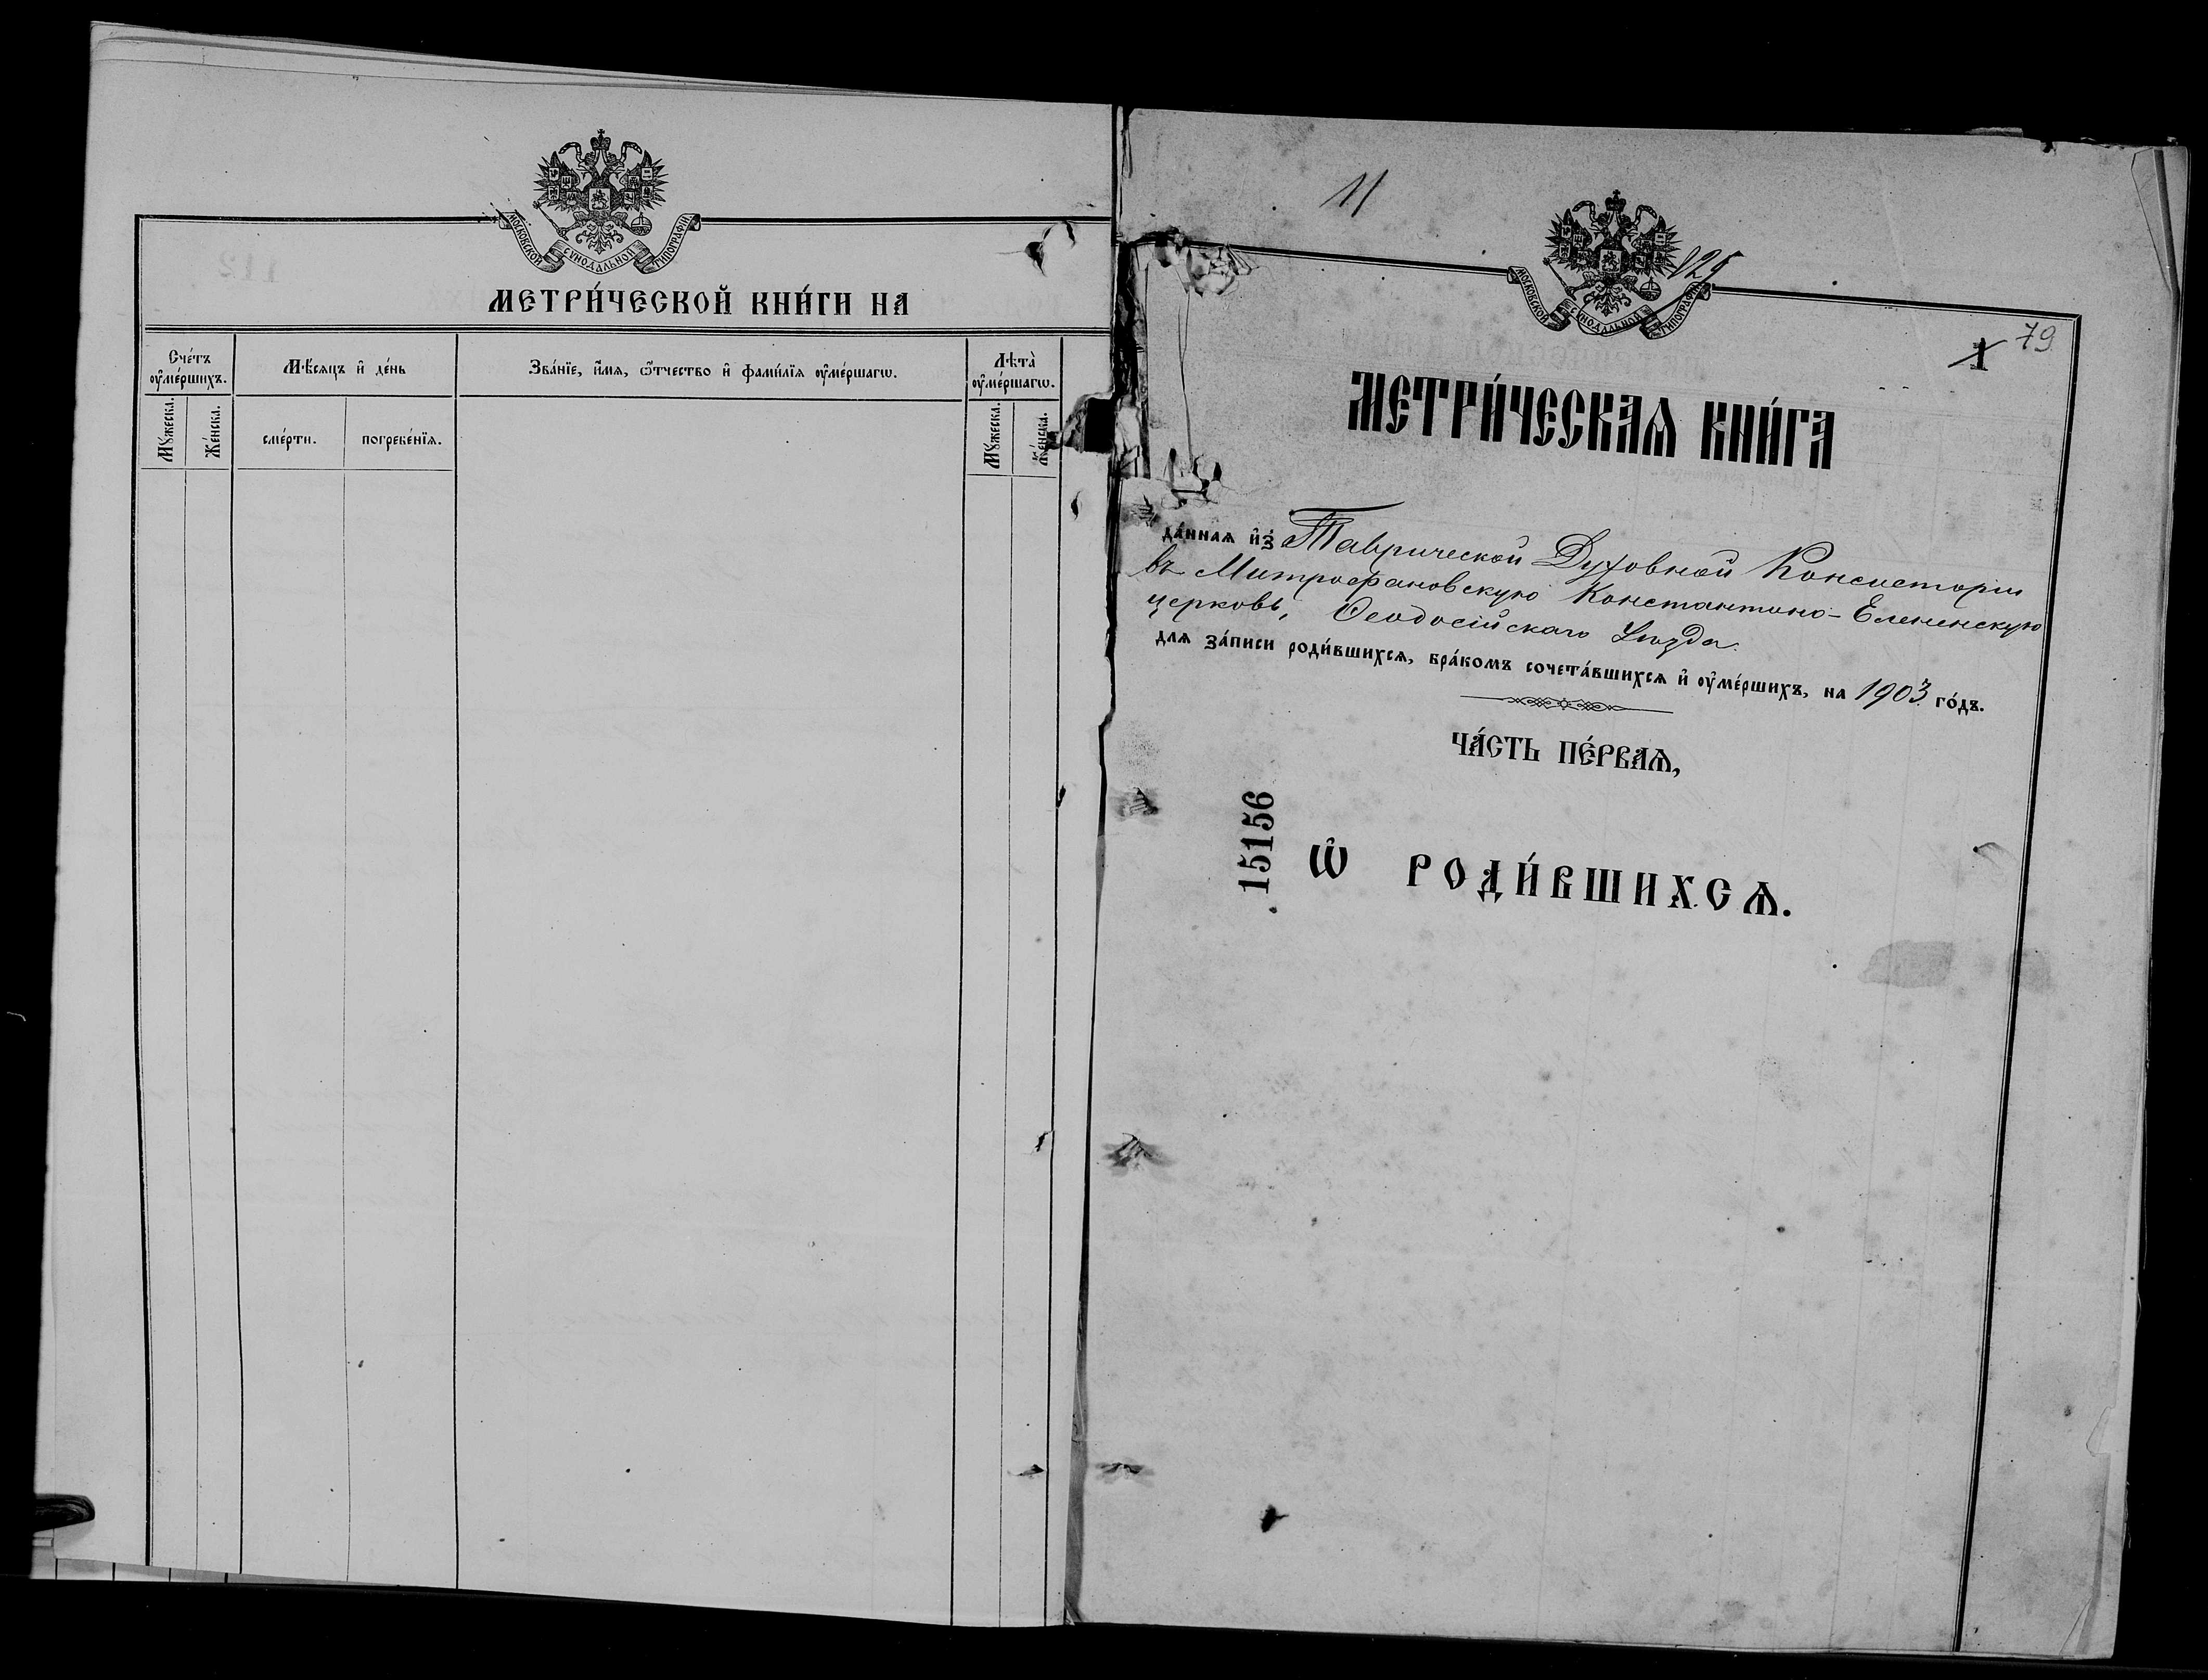 МОСКОВСКОЙ СѴНОДАЛЬНОЙ ТИПОГРАФІИ
МЕТРИ́ЧЕСКОЙ КНИ́ГИ НА
Сче́тъ ᲂу҆ме́ршихъ.
Мꙋ́жеска.
Же́нска.
Мѣ́сяцъ и҆ де́нь
сме́рти.
погребе́нїѧ.
Зва́нїе, и҆́мѧ, ѻ҆́тчество и҆ фами́лїѧ ᲂу҆ме́ршагѡ.
Лѣта̀ ᲂу҆ме́ршагѡ.
Мꙋ́жеска.
Же́нска.
11
МОСКОВСКОЙ СѴНОДАЛЬНОЙ ТИПОГРАФІИ
125
1
79
МЕТРИ́ЧЕСКАѦ КНИ́ГА
да́ннаѧ и҆з̾ Таврической Духовной Консисторіи
въ Митрофановскую Константино-Еленинскую
церковь, Ѳеодосійскаго Уѣзда
длѧ за́писи роди́вшихсѧ, бра́комъ сочета́вшихсѧ и҆ ᲂу҆ме́ршихъ, на 1903 го́дъ.
ЧА́СТЬ ПЕ́РВАѦ,
15156
Ѡ҆ РОДИ́ВШИХСѦ.